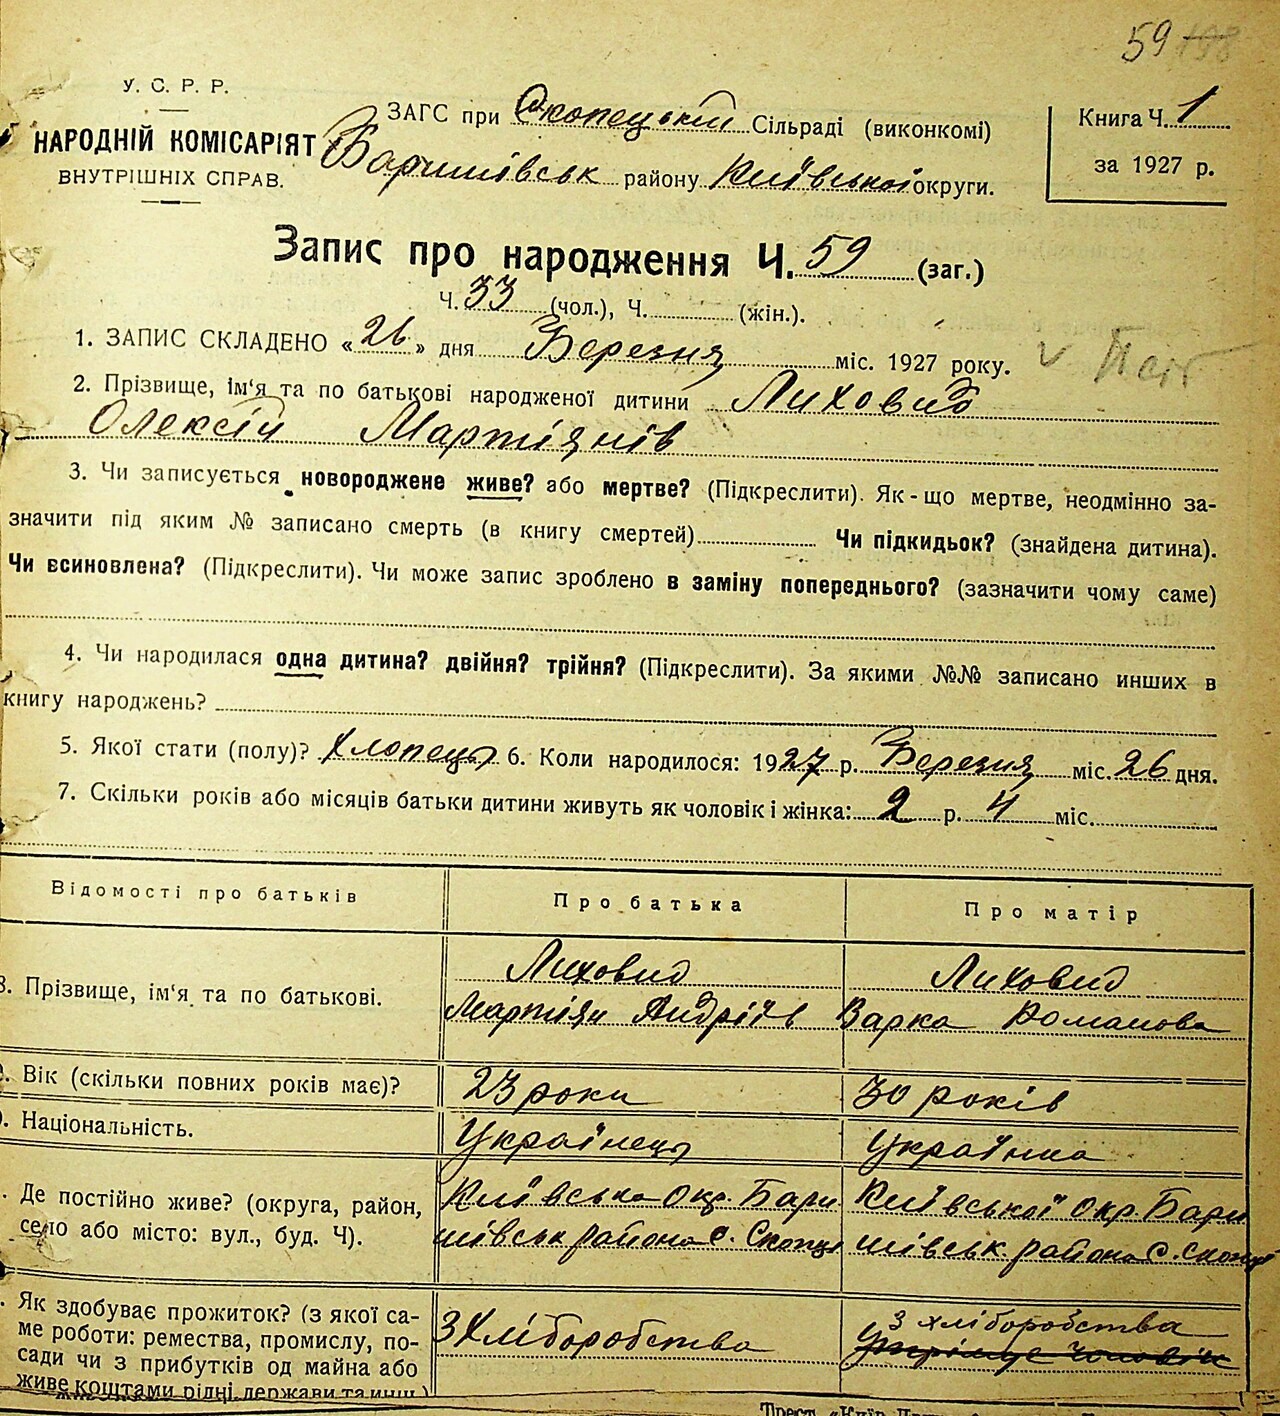 59 198
У. С. Р. Р.
НАРОДНІЙ КОМІСАРІЯТ
ВНУТРІШНІХ СПРАВ.
ЗАГС при Скопецькій Сільраді (виконкомі)
Баришівськ району Київської округи.
Книга Ч. 1
за 1927 р.
Запис про народження Ч. 59 (заг.)
Ч. 33 (чол.), Ч. (жін.).
1. ЗАПИС СКЛАДЕНО «26» дня Березня міс. 1927 року.
2. Прізвище, ім'я та по батькові народженої дитини Лиховид
Олексій Мартіянів
3. Чи записується новороджене живе? або мертве? (Підкреслити). Як-що мертве, неодмінно за-
значити під яким № записано смерть (в книгу смертей) Чи підкидьок? (знайдена дитина).
Чи всиновлена? (Підкреслити). Чи може запис зроблено в заміну попереднього? (зазначити чому саме)
4. Чи народилася одна дитина? двійня? трійня? (Підкреслити). За якими №№ записано инших в
книгу народжень?
5. Якої стати (полу)? Хлопець 6. Коли народилося: 1927 р. Березня міс. 26 дня.
7. Скільки років або місяців батьки дитини живуть як чоловік і жінка: 2 р. 4 міс.
Відомості про батьків Про батька Про матір
8. Прізвище, ім'я та по батькові.
Лиховид
Мартіян Андріїв
Лиховид
Варка Романова
. Вік (скільки повних років має)? 23 роки 30 років
. Національність. Українець Українка
. Де постійно живе? (округа, район,
село або місто: вул., буд. Ч).
Київська окр. Бари
шівськ района с. Скопці
Київської окр. Бари
шівськ. района с. Скопці
. Як здобуває прожиток? (з якої са-
ме роботи: ремества, промислу, по-
сади чи з прибутків од майна або
живе коштами рідні, держави та инш.)
З Хліборобства
З хліборобства